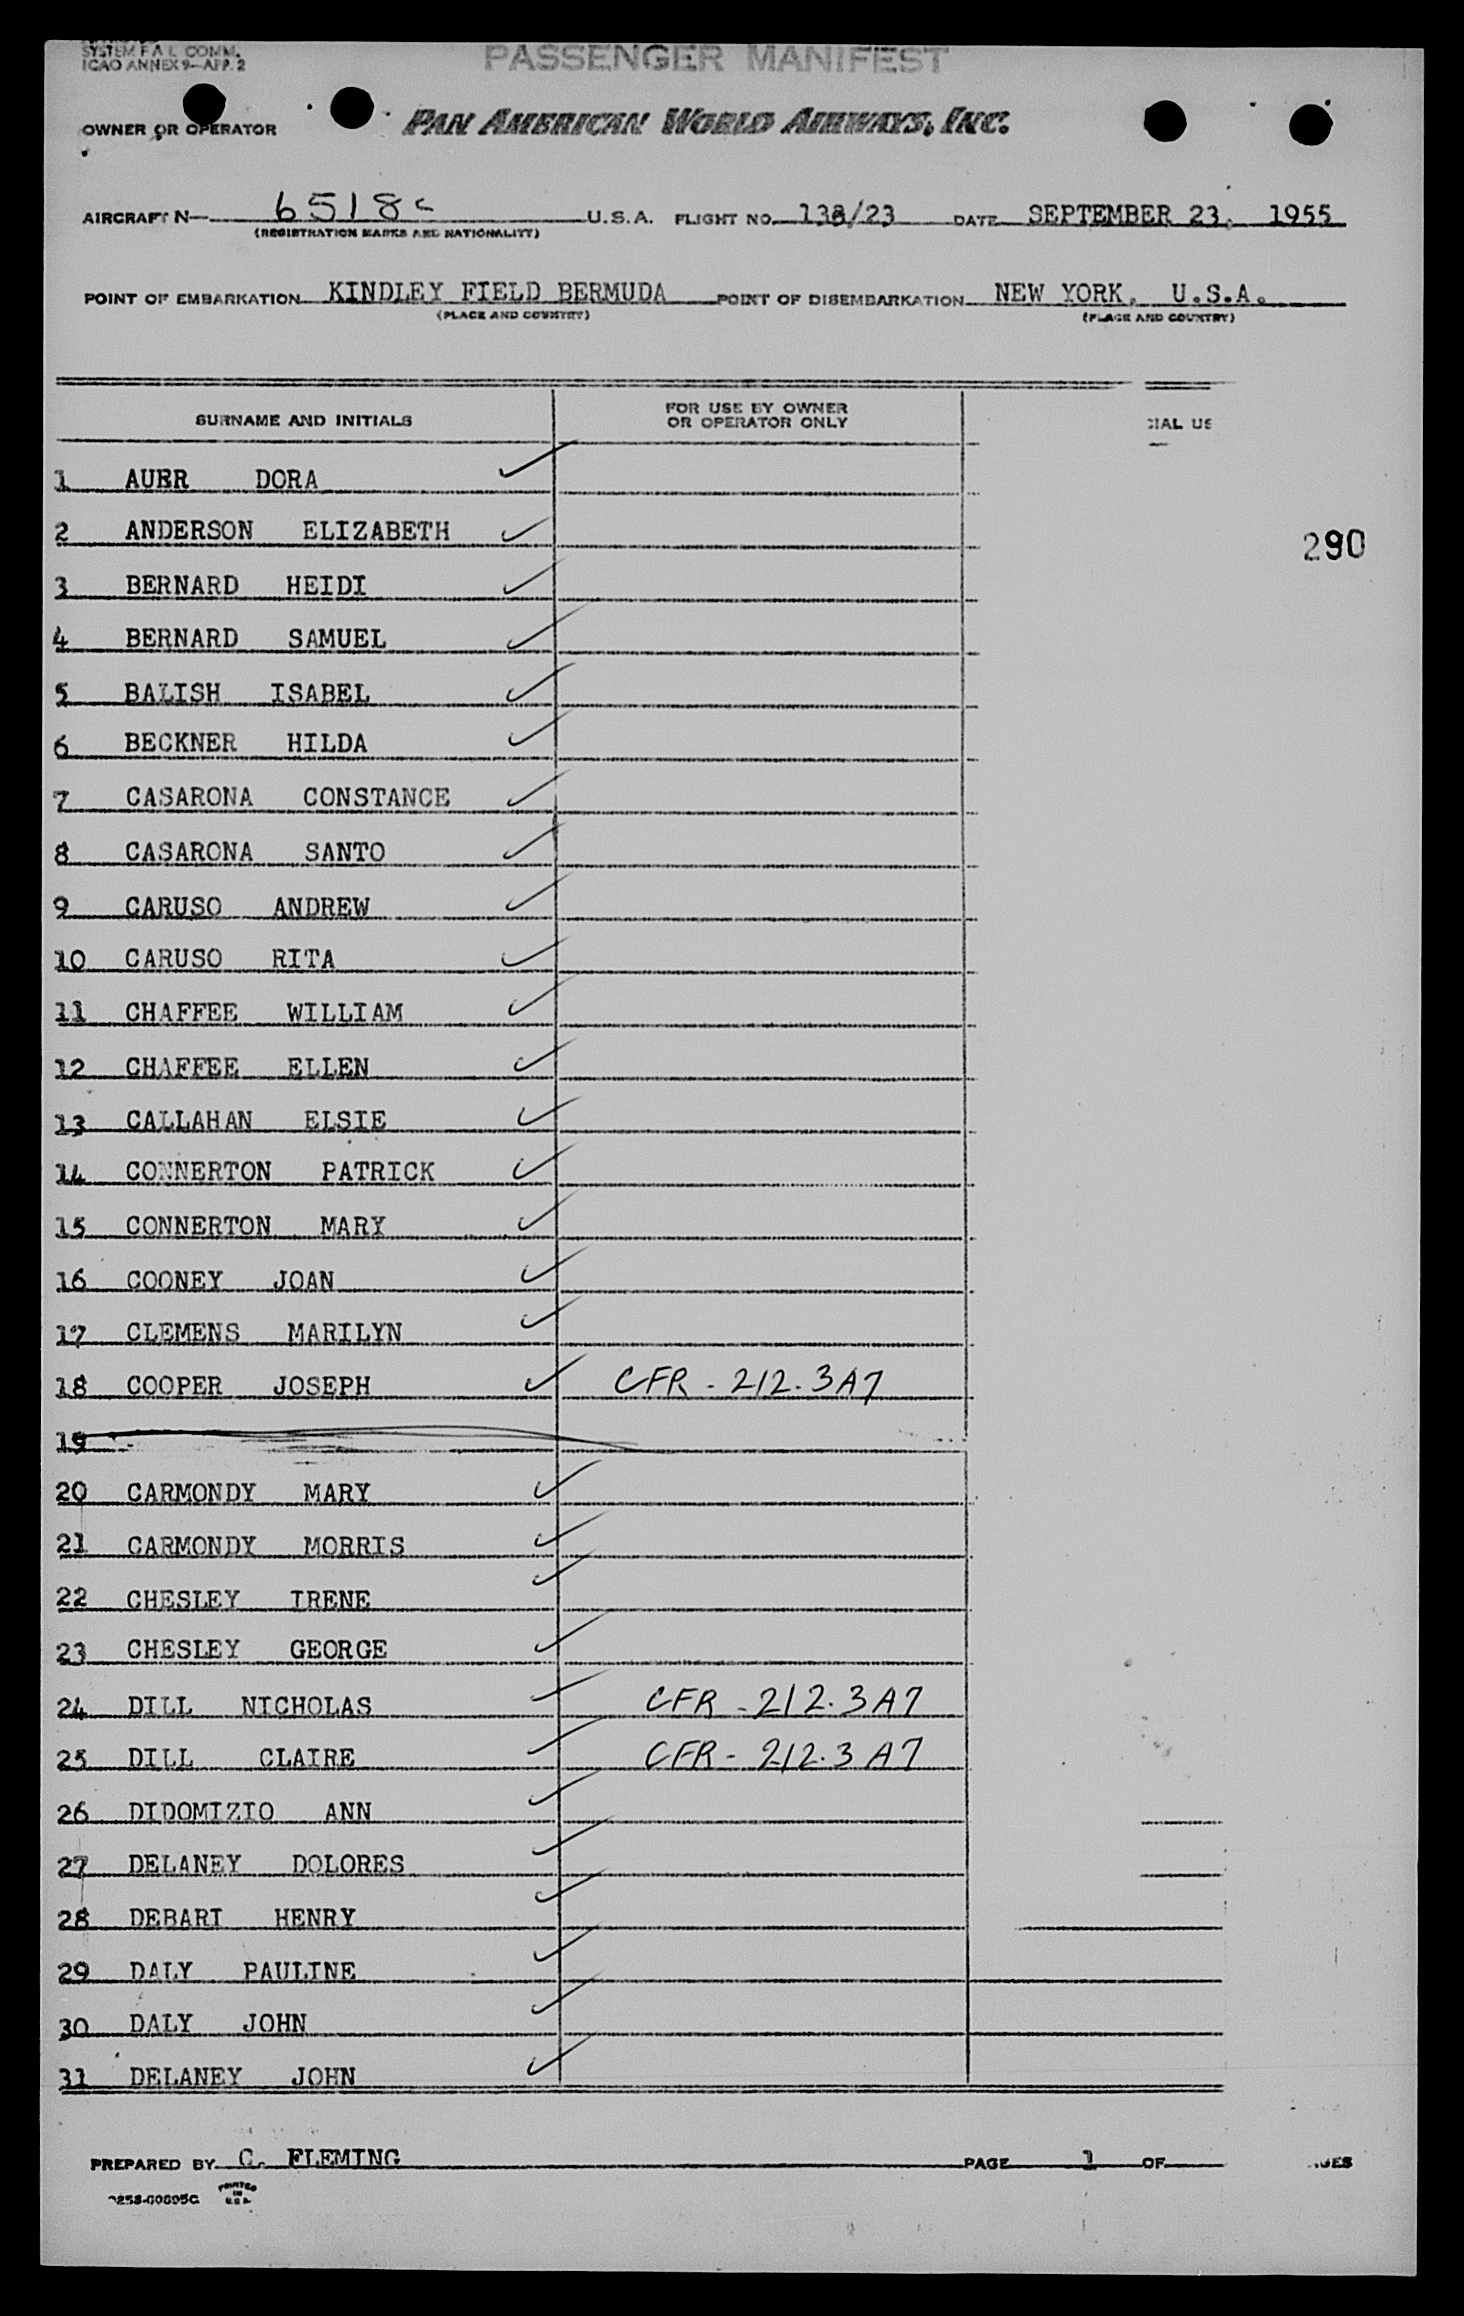 SYSTEM F A L COMM.
ICAO ANNEX 9-APP. 2
PASSENGER MANIFEST
OWNER OR OPERATOR PAN AMERICAN WORLD AIRWAYS, INC.
AIRCRAFT N- 6518c U.S.A. FLIGHT NO. 138/23 DATE SEPTEMBER 23, 1955
(REGISTRATION MARKS AND NATIONALITY)
POINT OF EMBARKATION KINDLEY FIELD BERMUDA POINT OF DISEMBARKATION NEW YORK, U.S.A.
(PLACE AND COUNTRY) (PLACE AND COUNTRY)
SURNAME AND INITIALS FOR USE BY OWNER OR OPERATOR ONLY CIAL US
1 AUER DORA
2 ANDERSON ELIZABETH
290
3 BERNARD HEIDI
4 BERNARD SAMUEL
5 BALISH ISABEL
6 BECKNER HILDA
7 CASARONA CONSTANCE
8 CASARONA SANTO
9 CARUSO ANDREW
10 CARUSO RITA
11 CHAFFEE WILLIAM
12 CHAFFEE ELLEN
13 CALLAHAN ELSIE
14 CONNERTON PATRICK
15 CONNERTON MARY
16 COONEY JOAN
17 CLEMENS MARILYN
18 COOPER JOSEPH CFR - 212.3A7
19
20 CARMONDY MARY
21 CARMONDY MORRIS
22 CHESLEY IRENE
23 CHESLEY GEORGE
24 DILL NICHOLAS CFR - 212.3A7
25 DILL CLAIRE CFR - 212.3A7
26 DIDOMIZIO ANN
27 DELANEY DOLORES
28 DEBART HENRY
29 DALY PAULINE
30 DALY JOHN
31 DELANEY JOHN
PREPARED BY C. FLEMING PAGE 1 OF GES
PRINTED IN U.S.A.